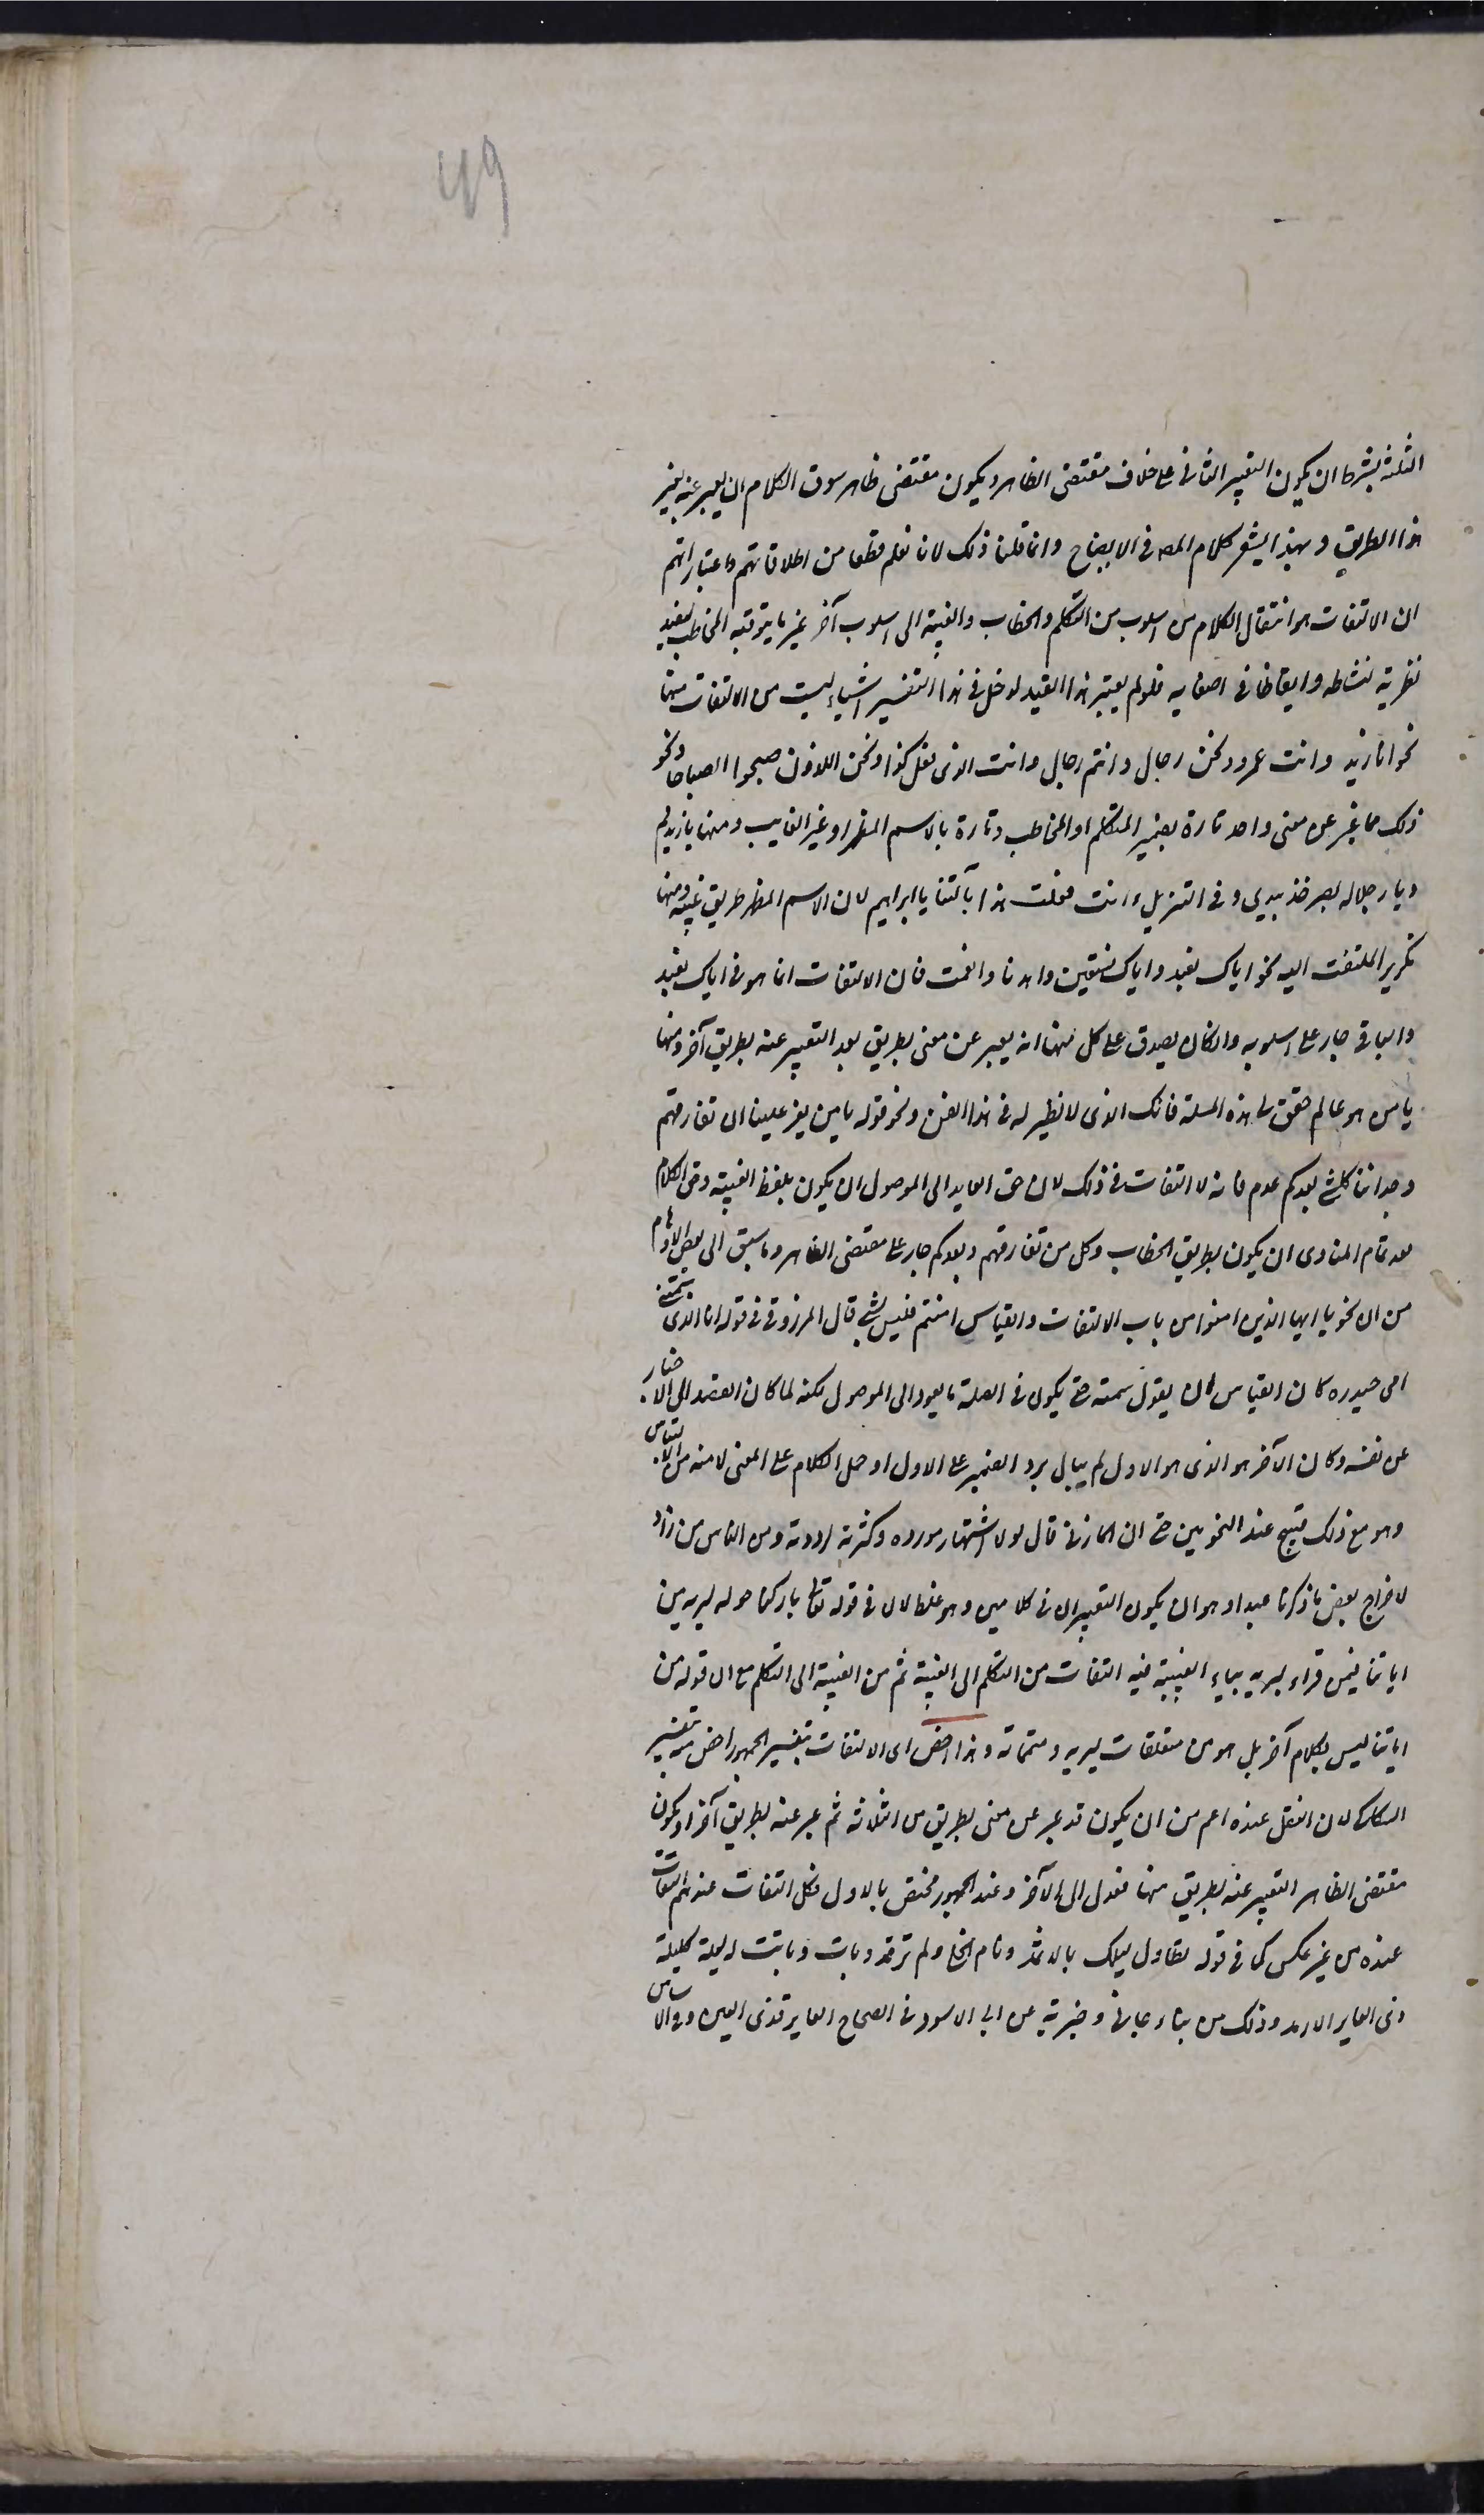 49
الثلثة بشرط ان يكون التعبير الثانى على خلاف مقتضى الظاهر ويكون مقتضى ظاهر سوق الكلام ان يعبر عنه بغير
هذا الطريق وبهذا يشعر كلام المصه فى الايضاح وانما قلنا ذلك لانا نعلم قطعا من اطلاقاتهم واعتباراتهم
ان الالتفات هو انتقال الكلام من اسلوب من التكلم والخطاب والغيبة الى اسلوب آخر غير ما يترقبه المخاطب ليفيد
تطرية لنشاطه وايقاظا فى اصغايه فلو لم يعتبر هذا القيد لدخل فى هذا التفسير اشياء ليست من الالتفات منها
نحو انا زيد وانت عمرو ونحن رجال وانتم رجال وانت الذى فعل كذا ونحن اللذون صبحوا الصباحا ونحو
ذلك مما عبر عن معنى واحد تارة بضمير المتكلم او المخاطب وتارة بالاسم المظهر او غير الغايب ومنها يا زيد قم
ويا رجلا له بصر خذ بيدى وفى التنزيل ءانت فعلت هذا بآلهتنا يا ابراهيم لان الاسم المظهر طريق غيبة ومنها
تكرير الملتفت اليه نحو اياك نعبد واياك نستعين واهدنا وانعمت فان الالتفات انما هو فى اياك نعبد
والباقى جار على اسلوبه وان كان يصدق على كل منها انه يعبر عن معنى بطريق بعد التعبير عنه بطريق آخر ومنها
يا من هو عالم حقق لى هذه المسلة فانك الذى لا نظير له فى هذا الفن ونحو قوله يا من يعز علينا ان نفارقهم
وجداننا كل شى بعدكم عدم فانه لا التفات فى ذلك لان حق العايد الى الموصول ان يكون بلفظ الغيبة وحق الكلام
بعد تمام المنادى ان يكون بطريق الخطاب وكل من نفارقهم وبعدكم جار على مقتضى الظاهر وما سبق الى بعض الاوهام
من ان نحو يا ايها الذين امنوا من باب الالتفات والقياس امنتم فليس بشى قال المرزوقى فى قوله انا الذى سمتنى
امى حيدره كان القياس ان يقول سمته حتى يكون فى الصلة ما يعود الى الموصول لكنه لما كان القصد الى الاخبار
عن نفسه وكان الآخر هو الذى هو الاول لم يبال برد الضمير على الاول وحمل الكلام على المعنى لامنه من الالتباس
وهو مع ذلك قبيح عند النحويين حتى ان المازنى قال لولا اشتهار مورده وكثرته لرددته ومن الناس من زاد
لاخراج بعض ما ذكرنا قيدا وهو ان يكون التعبيران فى كلامين وهو غلط لان فى قوله تعالى باركنا حوله لنريه من
اياتنا فيمن قراء ليريه بياء الغيبة فيه التفات من التكلم الى الغيبة ثم من الغيبة الى التكلم مع ان قوله من
اياتنا ليس بكلام آخر بل هو من متعلقات ليريه ومتماته وهذا اخص اى الالتفات بتفسير الجمهور اخص منه بتفسير
السكاكى لان النقل عنده اعم من ان يكون قد عبر عن معنى بطريق من الثلاثة ثم عبر عنه بطريق آخر او يكون
مقتضى الظاهر التعبير عنه بطريق منها فعدل الى الآخر وعند الجمهور مختص بالاول فكل التفات عندهم التفات
عنده من غير عكس كما فى قوله تطاول ليلك بالاثمد ونام الخلى ولم ترقد وبات وباتت له ليلة كليلة
ذى العاير الارمد وذلك من نبا جانى وخبرته عن ابى الاسود فى الصحاح العاير قذى العين وفى الاساس